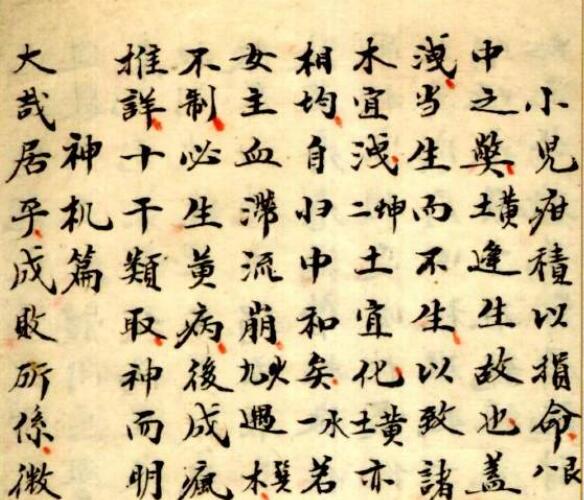 小児疳積以損命艮八
中之弊黄土逢生故也盖
洩当生而不生以致諸
木宜浅坤二土宜化黄土亦
相均自归中和矣水一若
女主血滞流崩火九遇巽木
不制必生黄病後成瘋
推詳十干類取神而明
神机篇
大哉居乎成敗所係微